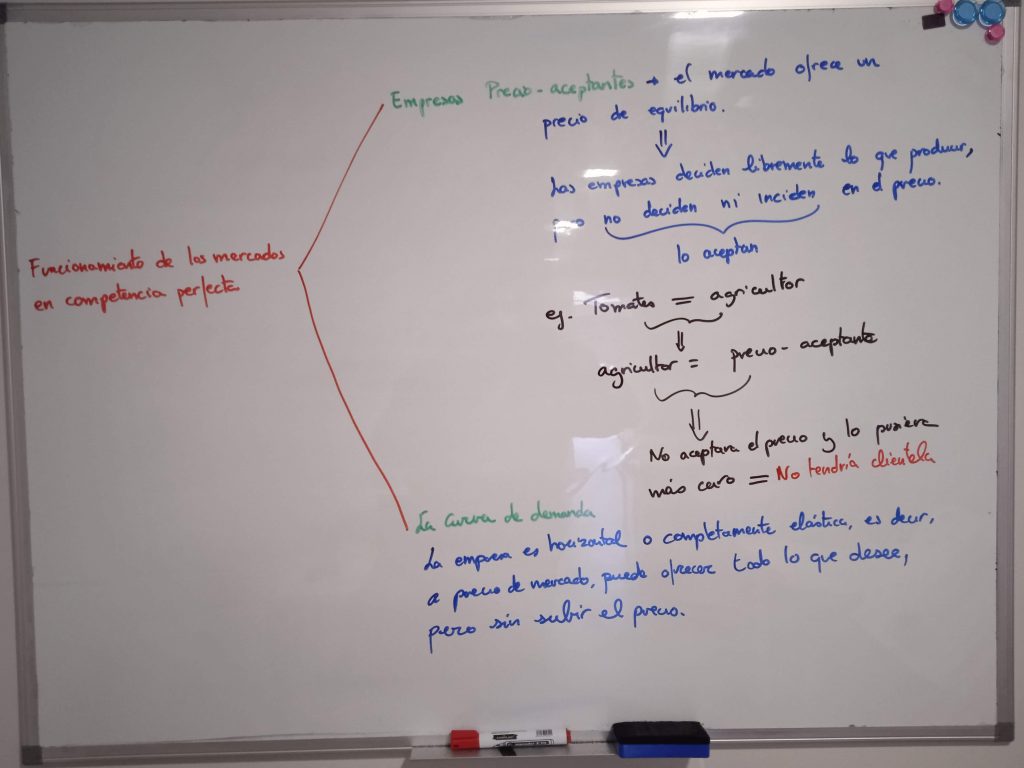 Empresas Precio-aceptantes → el mercado ofrece un
precio de equilibrio.
⇓
Las empresas deciden libremente lo que producir,
pero no deciden ni inciden en el precio.
lo aceptan
Funcionamiento de los mercados
en competencia perfecta
eg. Tomates = agricultor
⇓
agricultor = precio-aceptante
⇓
No aceptara el precio y lo pusiera
más caro = No tendría clientela
La curva de demanda
La empresa es horizontal o completamente elástica, es decir,
a precio de mercado, puede ofrecer todo lo que desee,
pero sin subir el precio.